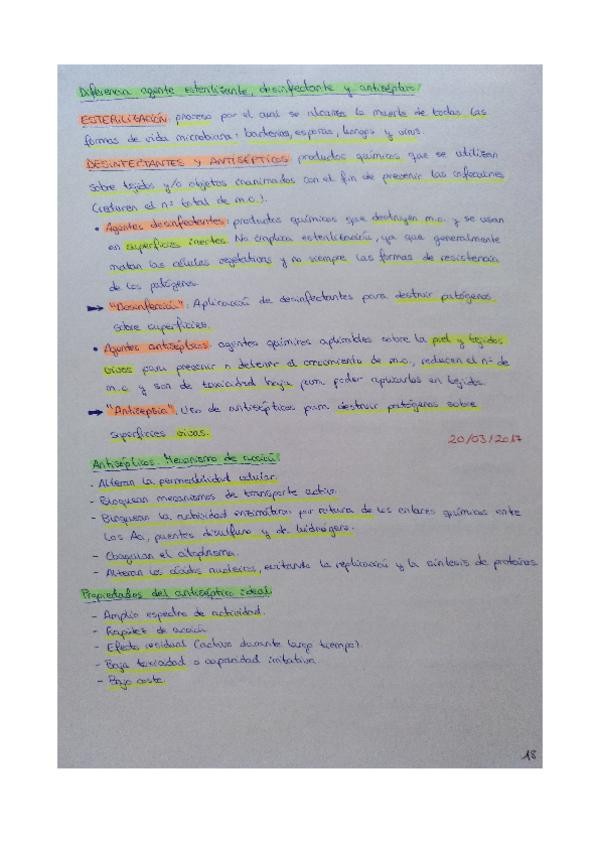 Diferencia agente esterilizante, desinfectante y antiséptico:
ESTERILIZACIÓN: proceso por el cual se alcanza la muerte de todas las
formas de vida microbiana: bacterias, esporas, hongos y virus.
DESINFECTANTES Y ANTISÉPTICOS: productos químicos que se utilizan
sobre tejidos y/o objetos inanimados con el fin de prevenir las infecciones
(reducen el nº total de m.o.).
• Agentes desinfectantes: productos químicos que destruyen m.o. y se usan
en superficies inertes. No implica esterilización, ya que generalmente
matan las células vegetativas y no siempre las formas de resistencia
de los patógenos.
→ "Desinfección": Aplicación de desinfectantes para destruir patógenos
sobre superficies.
• Agentes antisépticos: agentes químicos aplicables sobre la piel y tejidos
vivos para prevenir o detener el crecimiento de m.o., reducen el nº de
m.o y son de toxicidad baja para poder aplicarlos en tejidos.
→ "Antisepsia": Uso de antisépticos para destruir patógenos sobre
superficies vivas.
20/03/2017
Antisépticos. Mecanismo de acción:
- Alteran la permeabilidad celular.
- Bloquean mecanismos de transporte activo.
- Bloquean la actividad enzimática por rotura de los enlaces químicos entre
los Aa, puentes disulfuro y de hidrógeno.
- Coagulan el citoplasma.
- Alteran los ácidos nucleicos, evitando la replicación y la síntesis de proteínas
Propiedades del antiséptico ideal
- Amplio espectro de actividad.
- Rapidez de acción
- Efecto residual (activo durante largo tiempo).
- Baja toxicidad o capacidad irritativa
- Bajo coste.
18